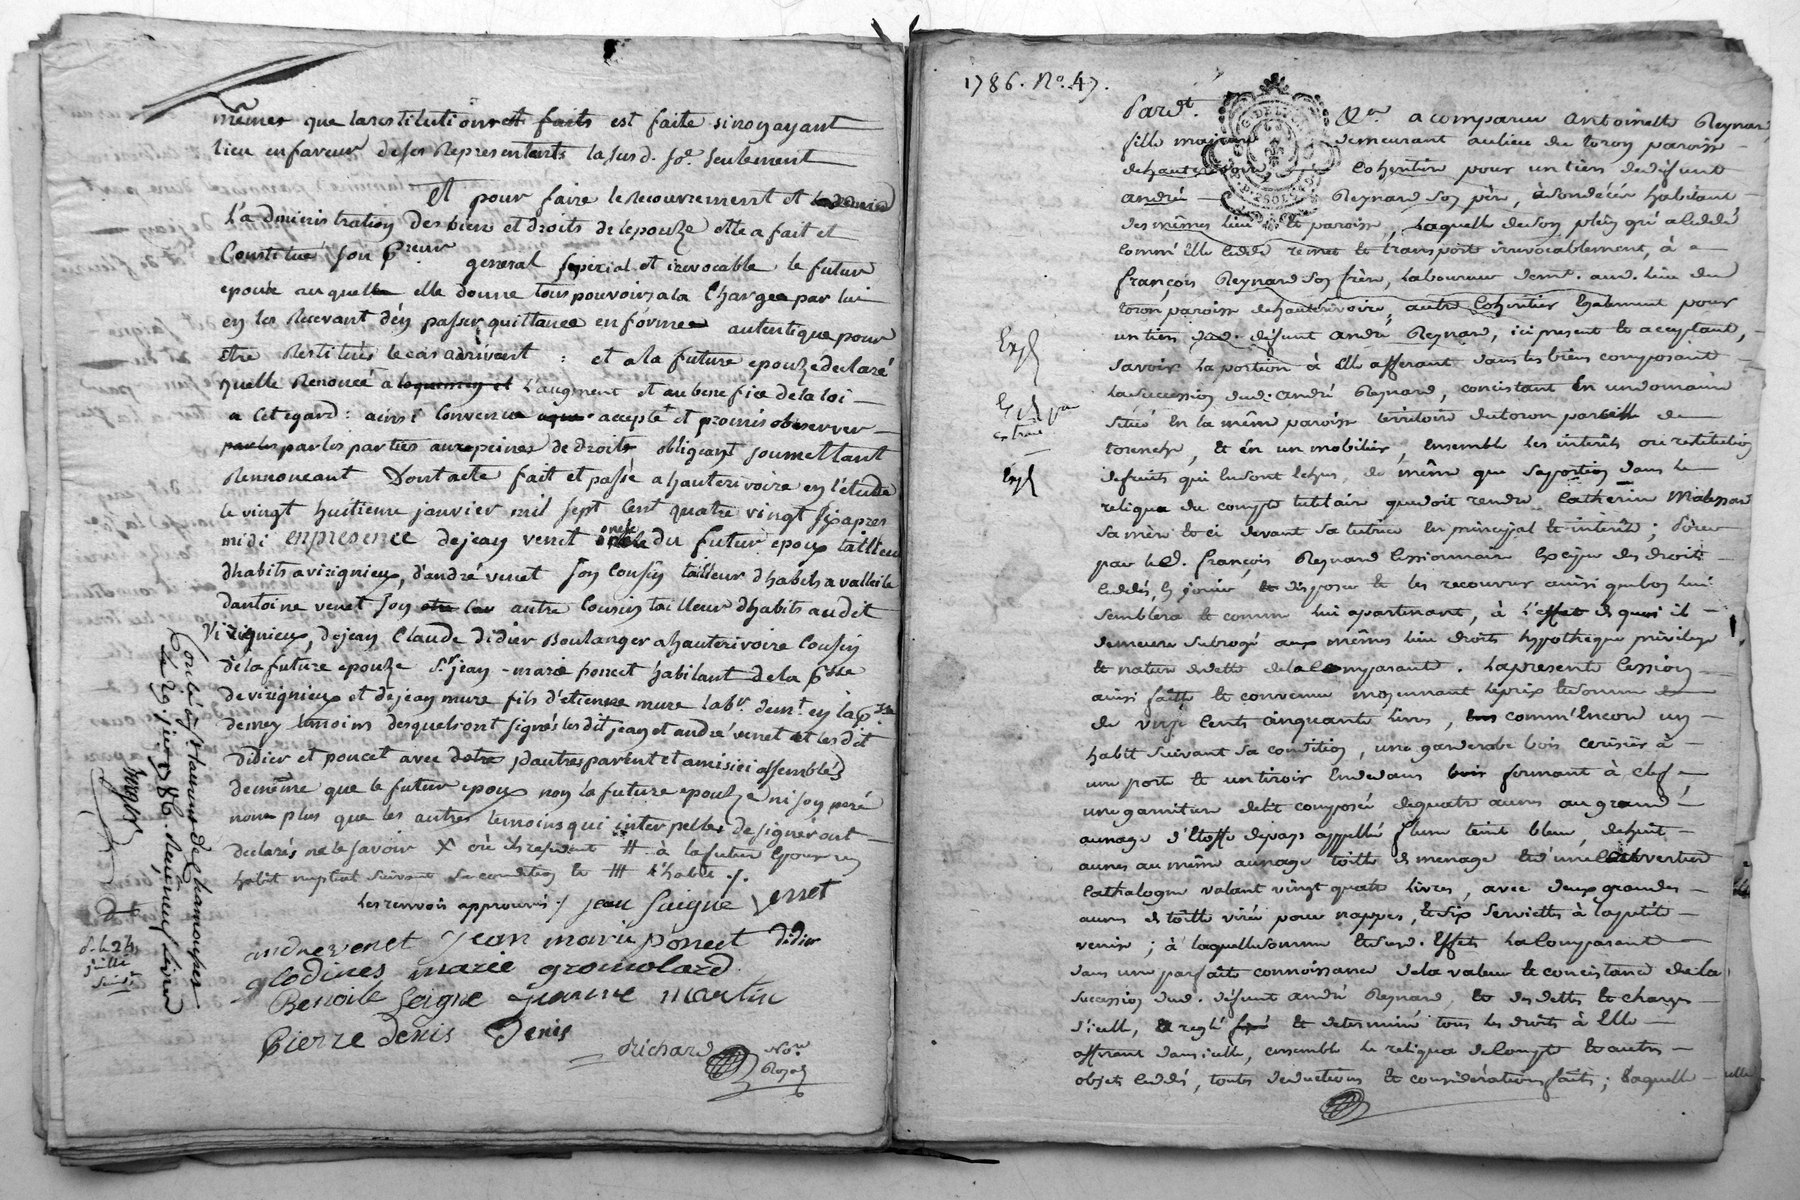 mêmes que la restitution et faits est faite sinon ayant
lieu en faveur de ses Representants la susd. so. seulement
Et pour faire le recouvrement et
L'administration des biens et droits de lepouze elle a fait et
Constitué son Preur general special et irrevocable le futur
epoux auquelle elle donne tous pouvoirs a la Charge par lui
en les Recevant d'en passer quittance en forme autentique pour
être Restitués le cas arrivant : et a la future epouze declaré
quelle Renoncé a L'augment et au benefice de la loi
a cet egard : ainsi Convenu accepté et promis observer
par les parties aux peines de droits, obligeant soumettant
Rennonceant Dont acte fait et passé a hauterivoire en l'étude
le vingt huitieme janvier mil sept Cent quatre vingt six apres
midi en presence de jean venet oncle du futur epoux tailleur
dhabits a virignieux, d'andré venet son Cousin tailleur dhabits a valleille
dantoine venet son autre Cousin tailleur dhabits audit
Virignieux, de jean Claude didier Boulanger a hauterivoire Cousin
de la future epouze Sr. jean-marie poncet habitant de la psse
de virignieux et de jean mure fils d'etienne mure lab. demt. en la psse
de mey temoins desquels ont signés les dit jean et andré venet et les dit
didier et poncet avec d'autres parent et amis ici assemblés
de même que le futur epoux non la future epouze ni son peré
non plus que les autres temoins qui interpellés de signer ont
declarés ne le savoir X où ils resident # à la future Epouse un
habit nuptial suivant sa condition et # l'habit ./.
les renvois approuvés ./. jean Saigne venet
andre venet jean marie poncet didier
Clodines marie gromolard
Benoite Seigne jeanne martin
Pierre denis Denis
Richard Nore. Royal
Controlé à St. Laurent de Chamousset
le 29 janvier 1786. Reçu neuf livres
1786. No. 47.
Pardt. Nre. a comparue Antoinette Reynard
fille majeure demeurant au lieu du toron paroisse
de hauterivoire Coheritière pour un tiers de deffunt
andré Reynard son père, à son décès habitant
des mêmes lieu et paroisse, Laquelle de son plein gré a Ceddé
comm'Elle Cedde remet et transporte irrevocablement, à
françois Reynard son frère, Laboureur demt. aud. lieu du
toron paroisse de hauterivoire, autre Coheritier Egalement pour
un tiers dud. deffunt andré Reynard, ici present et acceptant,
savoir La portion à Elle afferant dans les biens composant
La succession dud. andré Reynard, concistant En un domaine
situé En la même paroisse territoire du toron parcelle de
torenche, et En un mobilier, Ensemble les interêts ou restitution
de fruits qui En sont Echus, de même que sa portion dans le
reliqua du compte tutelaire que doit rendre Catherine
sa mère et ci devant sa tutrice En principal et interêts ; Pour
par led. françois Reynard Cessionnaire Exiger les droits
Ceddés, En jouir, disposer et les recouvrer ainsi que bon lui
semblera et comme lui apartenant, à L'effet de quoi il
demeure subrogé aux mêmes lieu droits hypotheque privilege
et nature de dette de la Comparante. La presente Cession
ainsi faitte et convenue moyennant Le prix et somme
de cents cinquante livres, comm'Encore un
habit suivant sa condition, une garderobe bois cerisier à
une porte et un tiroir En dedans fermant à Clef
une garniture de lit composée de quatre aunes au grand
aunage d'Etoffe du pays appellé teint bleu, de huit
aunes au même aunage toille de menage et d'une Couverture
Cathalogne valant vingt quatre livres, avec deux grandes
aunes de toille pour nappes, et six serviettes à la petite
venise ; à laquelle somme et susd. Effets La Comparante
dans une parfaite connoissance de la valeur et concistance de la
succession dud. deffunt andré Reynard, et des dettes et charges
d'icelle, a reglé et determiné tous les droits à Elle
afferant dans icelle, ensemble le reliqua de Compte et autres
objets Ceddés, toutes deductions et considerations faites ; Laquelle